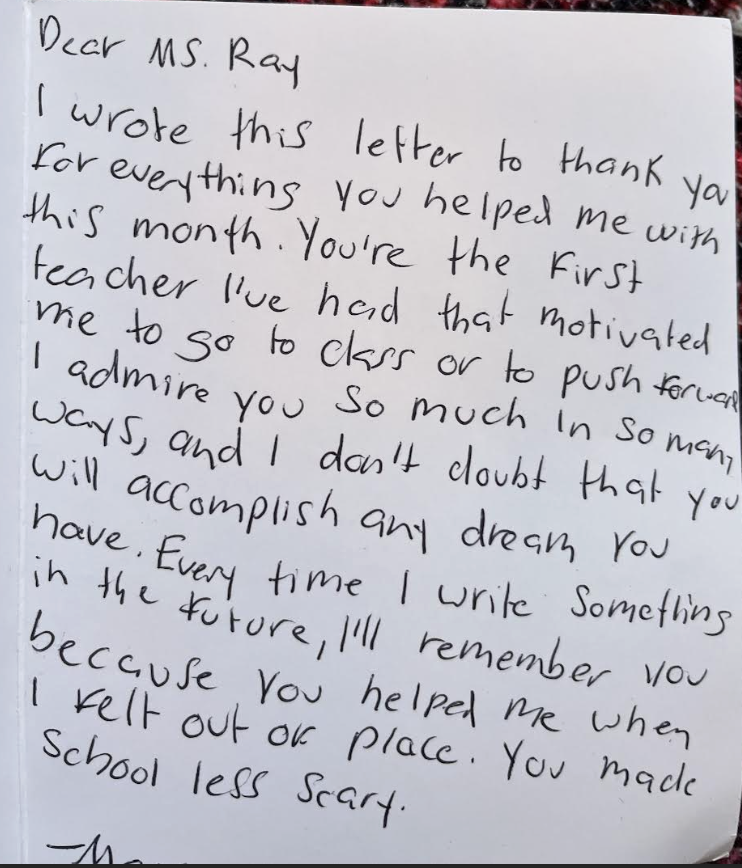 Dear MS. Ray
I wrote this letter to thank you
for everything you helped me with
this month. You're the first
teacher I've had that motivated
me to go to class or to push forward
I admire you so much in so many
ways, and I don't doubt that you
will accomplish any dream you
have. Every time I write something
in the future, I'll remember you
because you helped me when
I felt out of place. You made
School less scary.